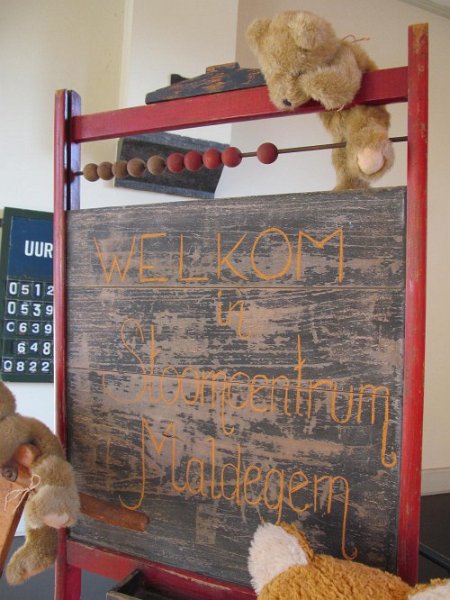 WELKOM
in
Stoomcentrum
Maldegem
UUR
0512
0539
C639
648
802